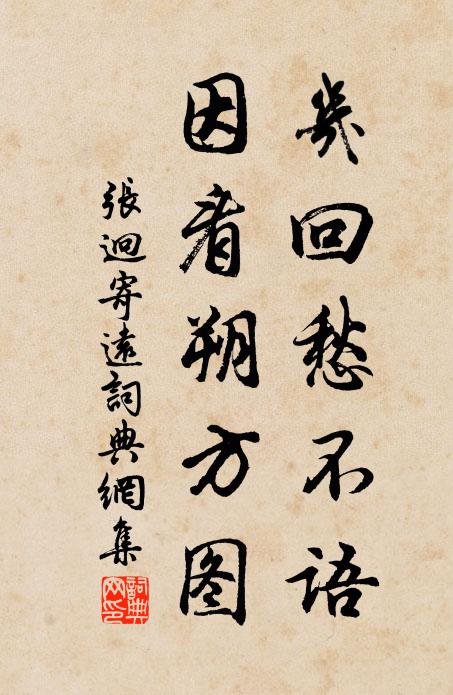 幾回愁不語
因看朔方图
張迥寄遠詞典網集
詞典网印